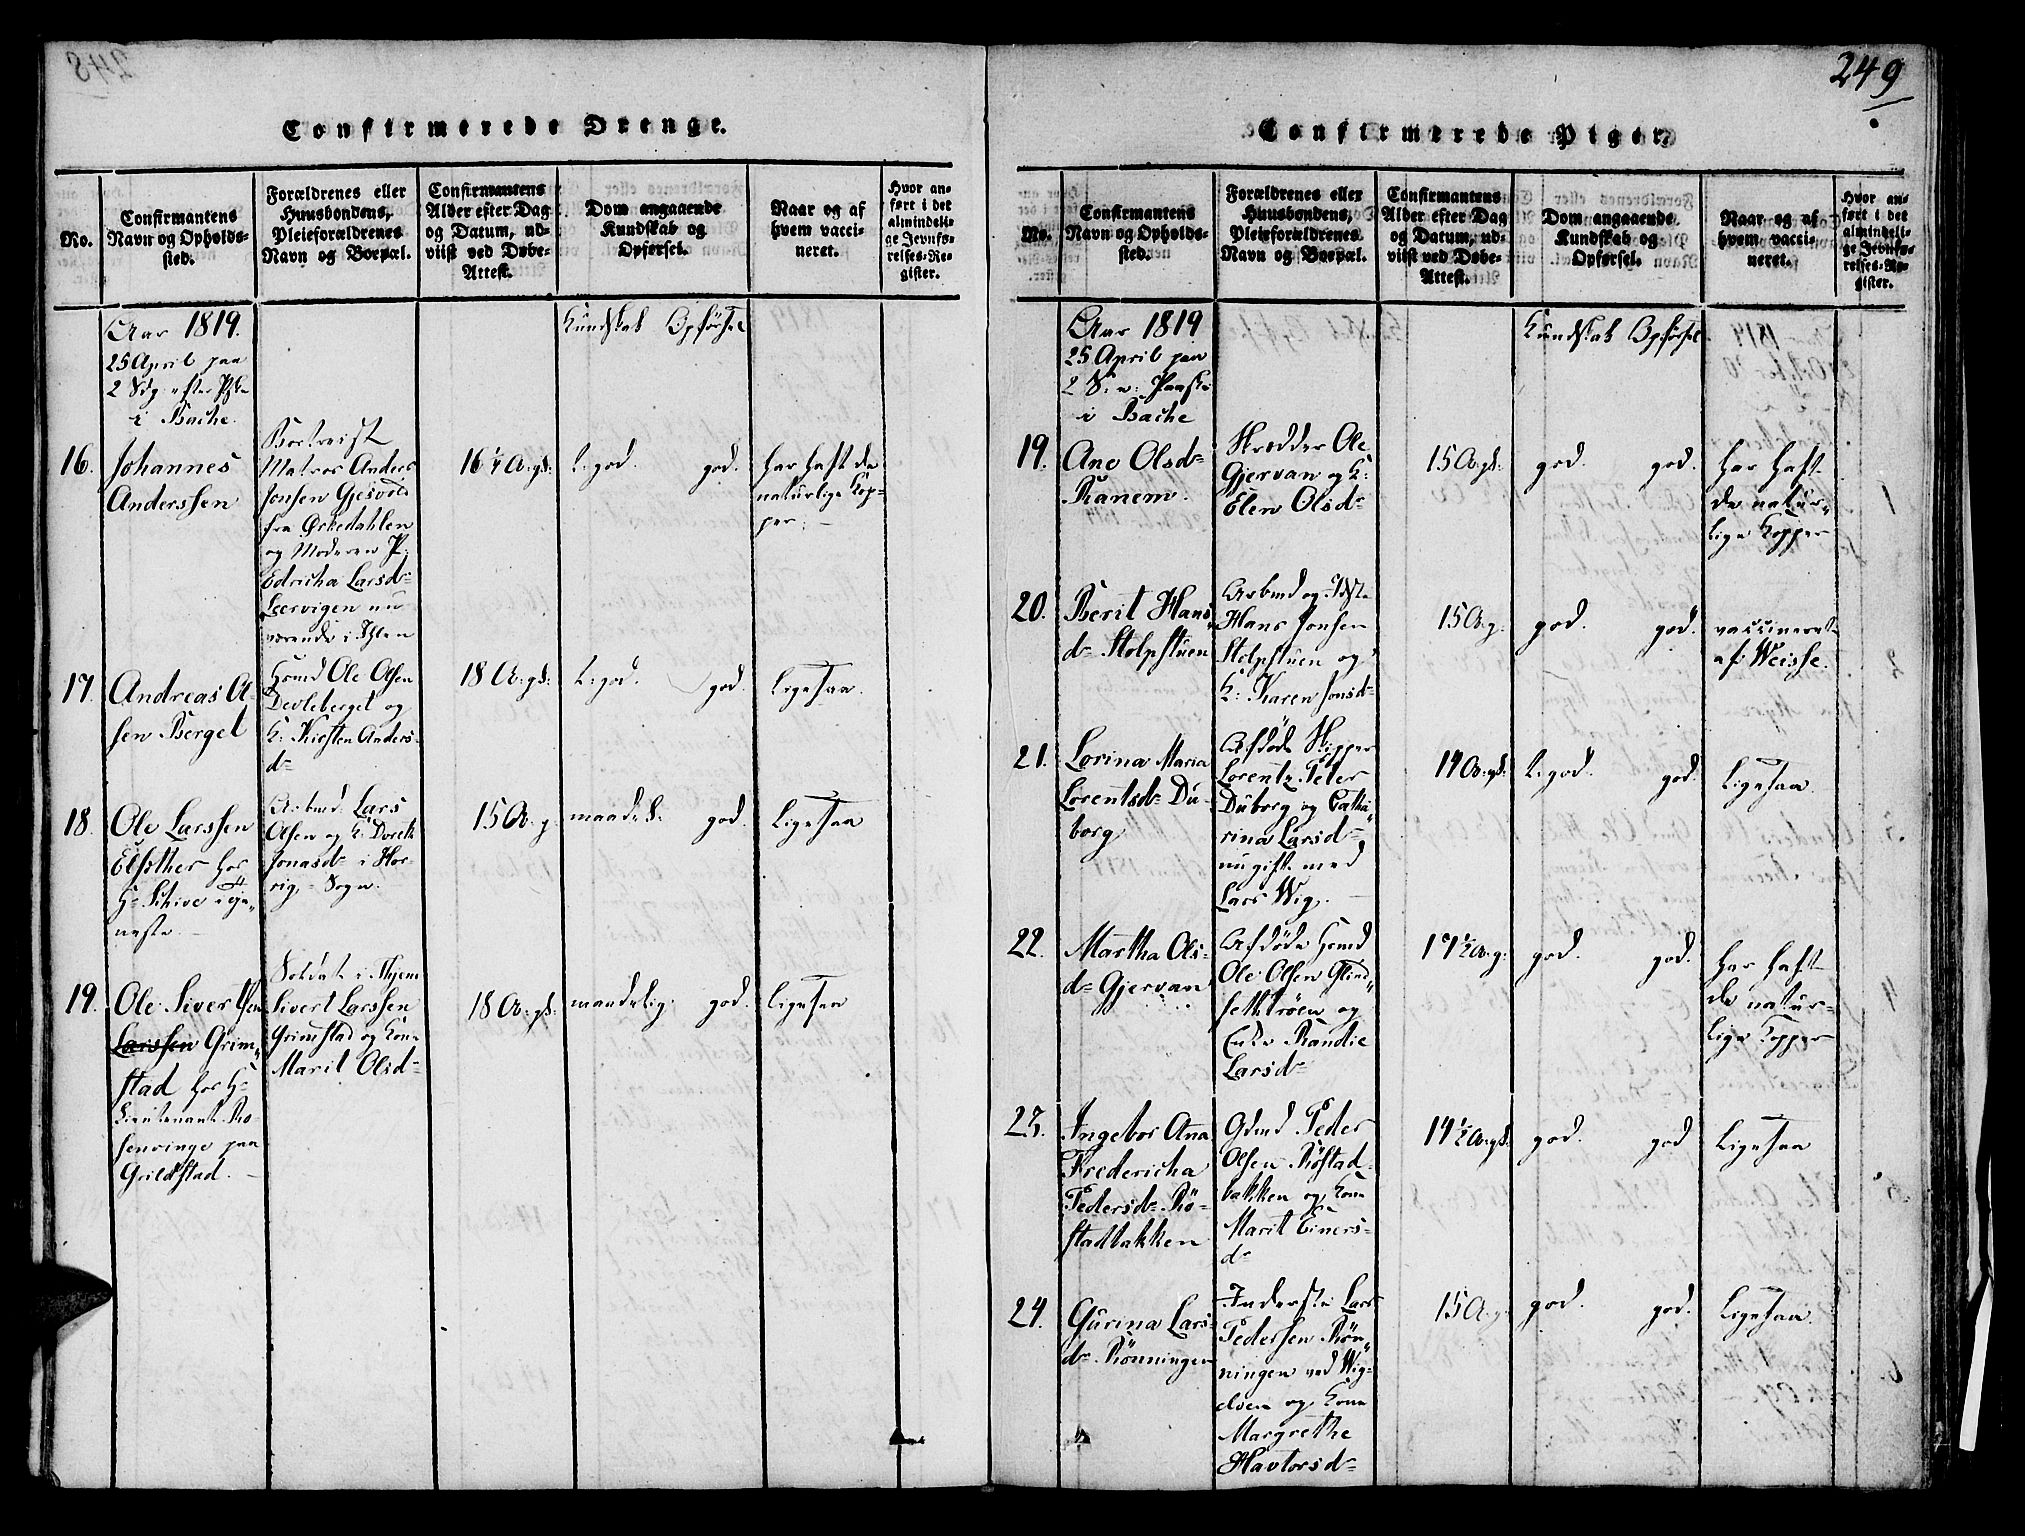 249
Confirmerede Drenge.
No.
Confirmantens
Navn og Opholds-
sted.
Forældrenes eller
Huusbondens,
Pleieforældrenes
Navn og Boepæl.
Confirmantens
Alder efter Dag
og Datum, ud-
viist ved Døbe-
Attest.
Dom angaaende
Kundskab og
Opførsel.
Naar og af
hvem vacci-
neret.
Hvor an-
ført i det
almindeli-
ge Jevnfø-
relses-Re-
gister.
Aar 1819.
25 April paa
2 Sdg efter Pske
i Bache.
Kundskab Opførsel
16.
Johannes
Anderssen
Bortreist
Matros Anders
Jonsen Gjesvold
fra Ørkedahlen
og Moderen P:
Edricha Larsdr
Leervigen nu
værende i Ihlen
16 1/4 A. gl:
t: god. god.
har haft de
naturlige Kop-
per. -
17.
Andreas Ol-
sen Berget
Hmd Ole Olsen
Devleberget og
K: Kirsten Anders-
dr
18 A: gl:
t: god. god.
Ligesaa.
18.
Ole Larssen
Elsother hos
Hr Schive i Tje-
neste.
Arbmd: Lars
Olsen og K: Doreth
Jonasdr i Hor-
rig - Sogn.
15 A. g.
maadel: god.
Ligesaa
19.
Ole Sivertsen
Larssen Grim-
stad hos Hr
Lieutenant Ro-
senvinge paa
Grildstad.
Soldat i Thjem
Sivert Larssen
Grimstad og Kone
Marit Olsdr
18 A: gl:
maadelig. god.
Ligesaa
Confirmerede Piger.
No.
Confirmantens
Navn og Opholds-
sted.
Forældrenes eller
Huusbondens,
Pleieforældrenes
Navn og Boepæl.
Confirmantens
Alder efter Dag
og Datum, ud-
viist ved Døbe-
Attest.
Dom angaaende
Kundskab og
Opførsel.
Naar og af
hvem vacci-
neret.
Hvor an-
ført i det
almindeli-
ge Jevnfø-
relses-Re-
gister.
Aar 1819
25 April paa
2 S. e: Paaske
i Bache
Kundskab Opførsel
19.
Ane Olsdr
Ranem.
Skrædder Ole
Gjervan og K:
Elen Olsdr
15 A. gl:
god. god.
har haft
de natur-
lige Kopper
20.
Berit Hans-
dr Stolpstuen
Arbmd og Idste
Hans Jonsen
Stolpstuen og
K: Karen Jonsdr
15 A: g.
god. god.
vaccineret
af Weisse.
21.
Lorina Maria
Lorentsdr Du-
borg
Afdøde Skipper
Lorentz Peter
Duborg og Catha-
rina Larsdr
nu gift med
Lars Wig.
14 A. gl:
t: god. god.
Ligesaa.
22.
Martha Ols-
dr Gjervan
Afdøde Hmd
Ole Olsen Flind-
settrøen og
Enke Randie
Larsdr
17 1/2 A. g:
god. god.
har haft
de natur-
lige Kopper
23.
Ingebor Ana
Fredericha
Pedersdr Rø-
stadbakken
Gdmd Peder
Olsen Røstad-
bakken og Kone
Marit Einers-
dr
14 1/2 A. gl:
god. god
Ligesaa
24.
Gurina Lars-
dr Rønningen
Inderste Lars
Pedersen Røn-
ningen ved Wig-
elven og Kone
Margrethe
Havtorsdr
15 A. g.
god. god.
Ligesaa.